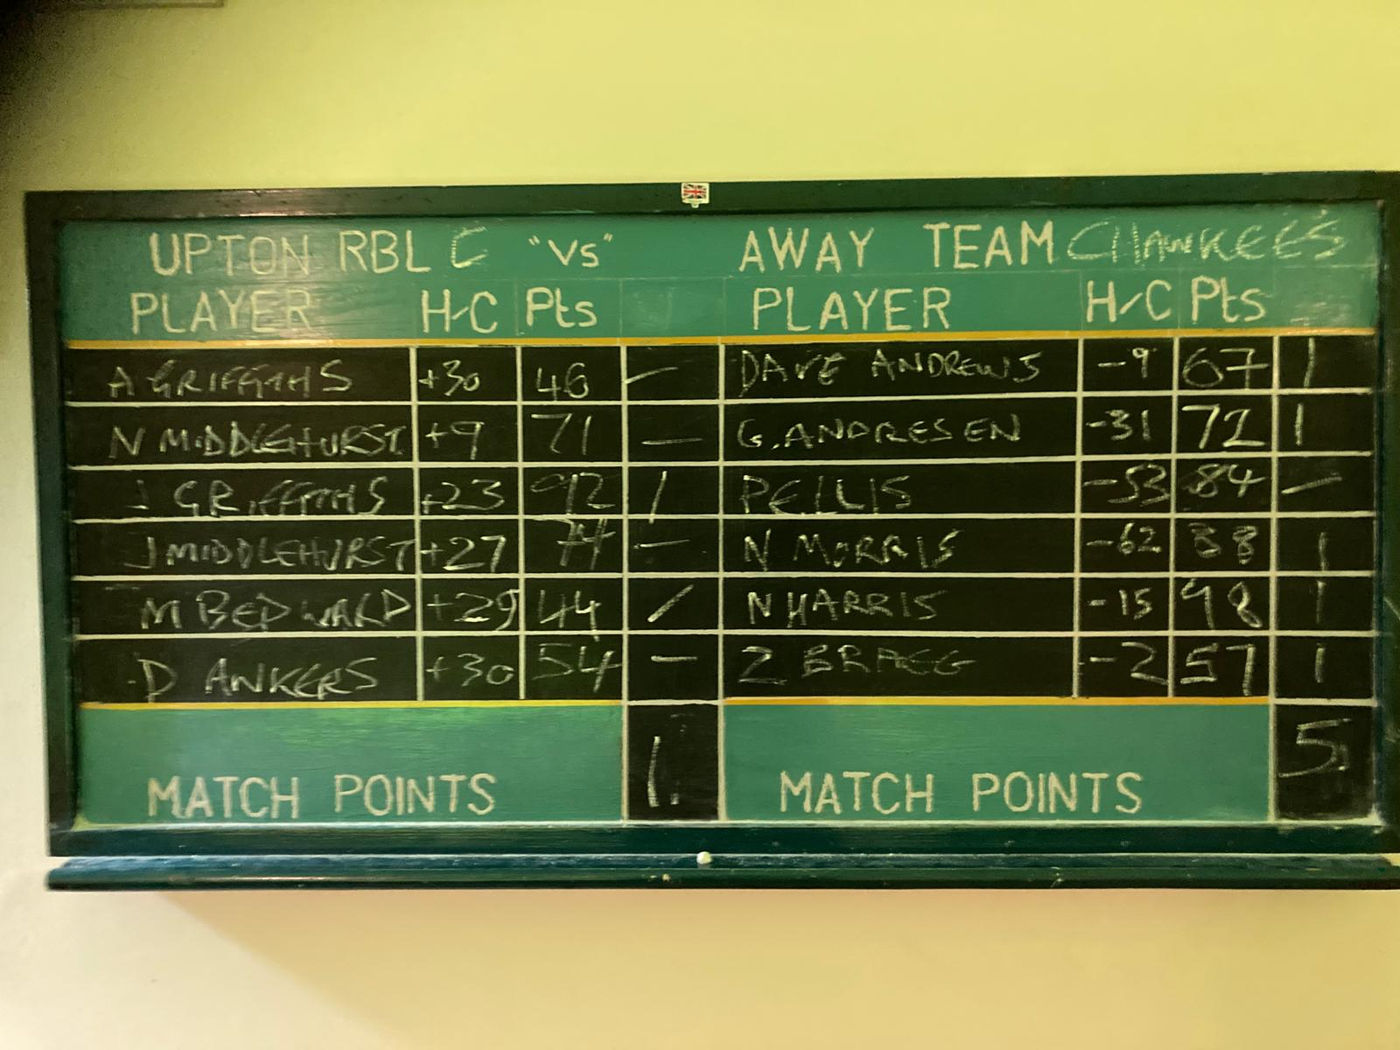 UPTON RBL C "Vs" AWAY TEAM CHAWKEES
PLAYER H/C Pts PLAYER H/C Pts
A GRIFFITHS +30 46 — DAVE ANDREWS -9 67 1
N MIDDLEHURST +9 71 — G. ANDRESEN -31 72 1
J GRIFFITHS +23 92 / P ELLIS -53 84 —
J MIDDLEHURST +27 74 — N MORRIS -62 88 1
M BEDWARD +29 44 / N HARRIS -15 98 1
D ANKERS +30 54 — Z BRAGG -2 57 1
MATCH POINTS 1. MATCH POINTS 5.